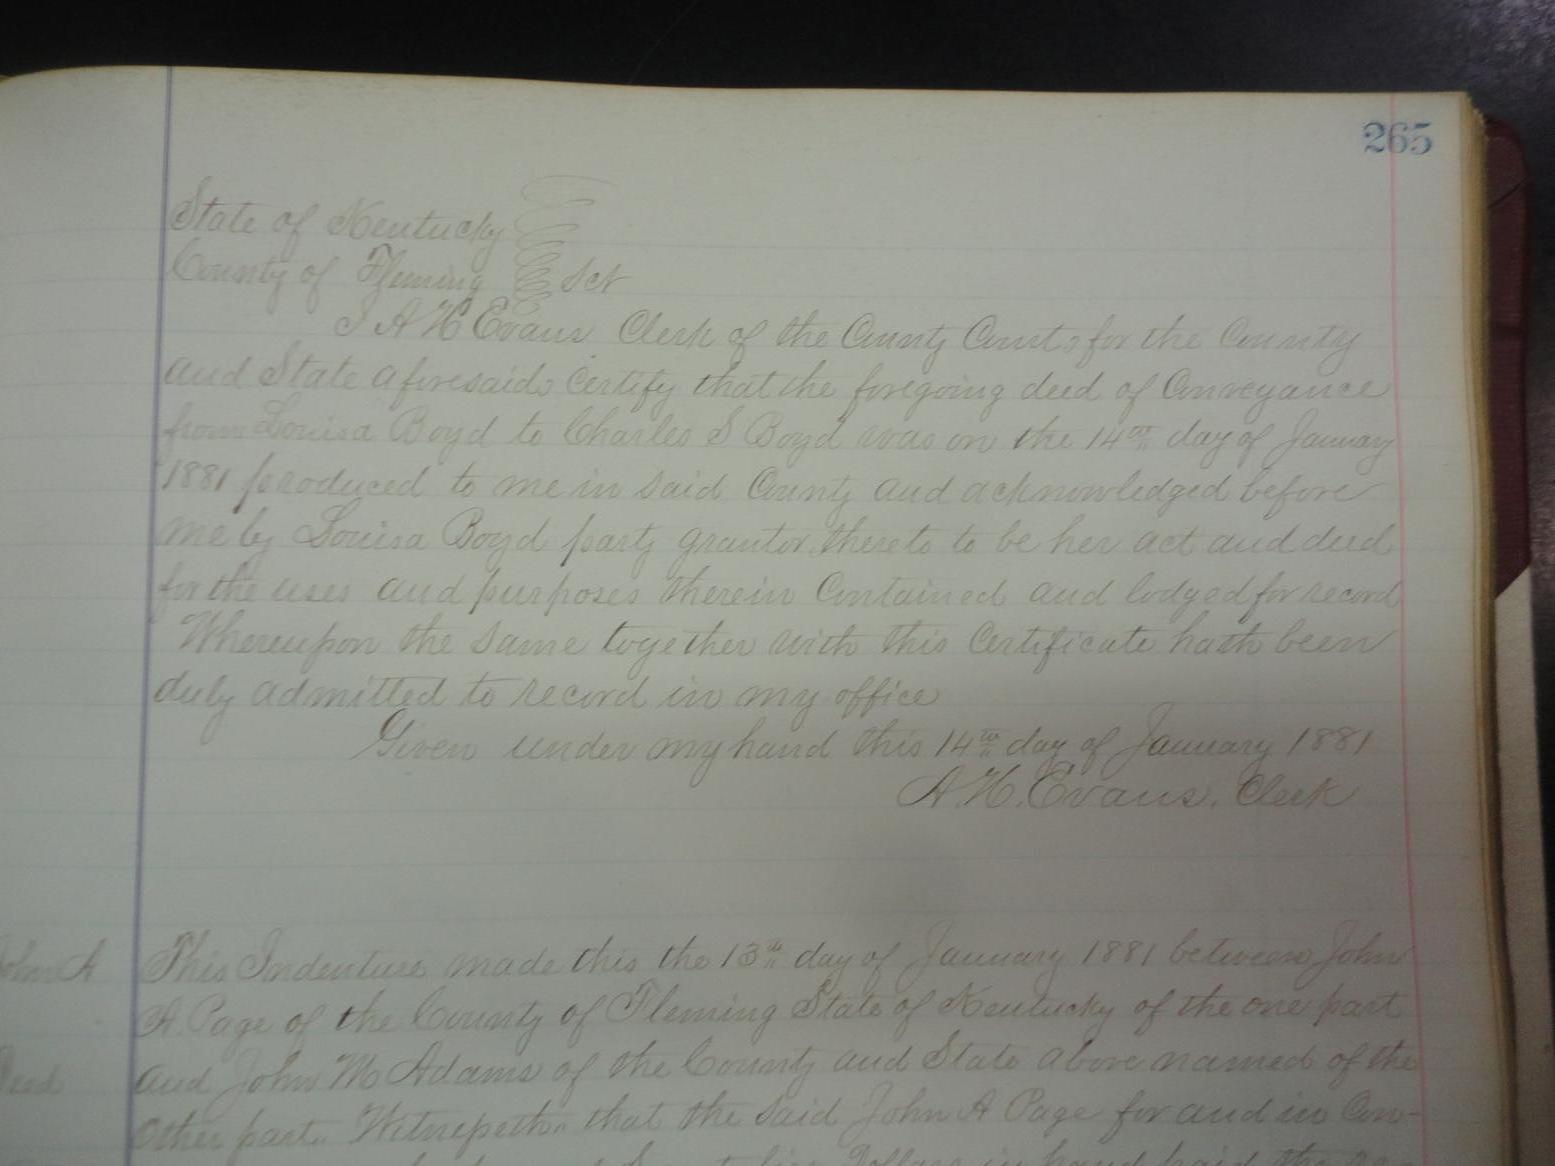 265
State of Kentucky
County of Fleming Sct
I A H Evans Clerk of the County Court, for the County
and State aforesaid, Certify that the foregoing deed of Conveyance
from Louisa Boyd to Charles S Boyd was on the 14th day of January
1881 produced to me in said County and acknowledged before
me by Louisa Boyd party grantor thereto to be her act and deed
for the uses and purposes therein Contained and lodged for record
Whereupon the same together with this Certificate hath been
duly admitted to record in my office
Given under my hand this 14th day of January 1881
A. H. Evans, Clerk
John A This Indenture made this the 13th day of January 1881 between John
A. Page of the County of Fleming State of Kentucky of the one part
Deed and John M Adams of the County and State above named of the
other part. Witnesseth, that the said John A Page for and in Con-
Dollars in hand paid the